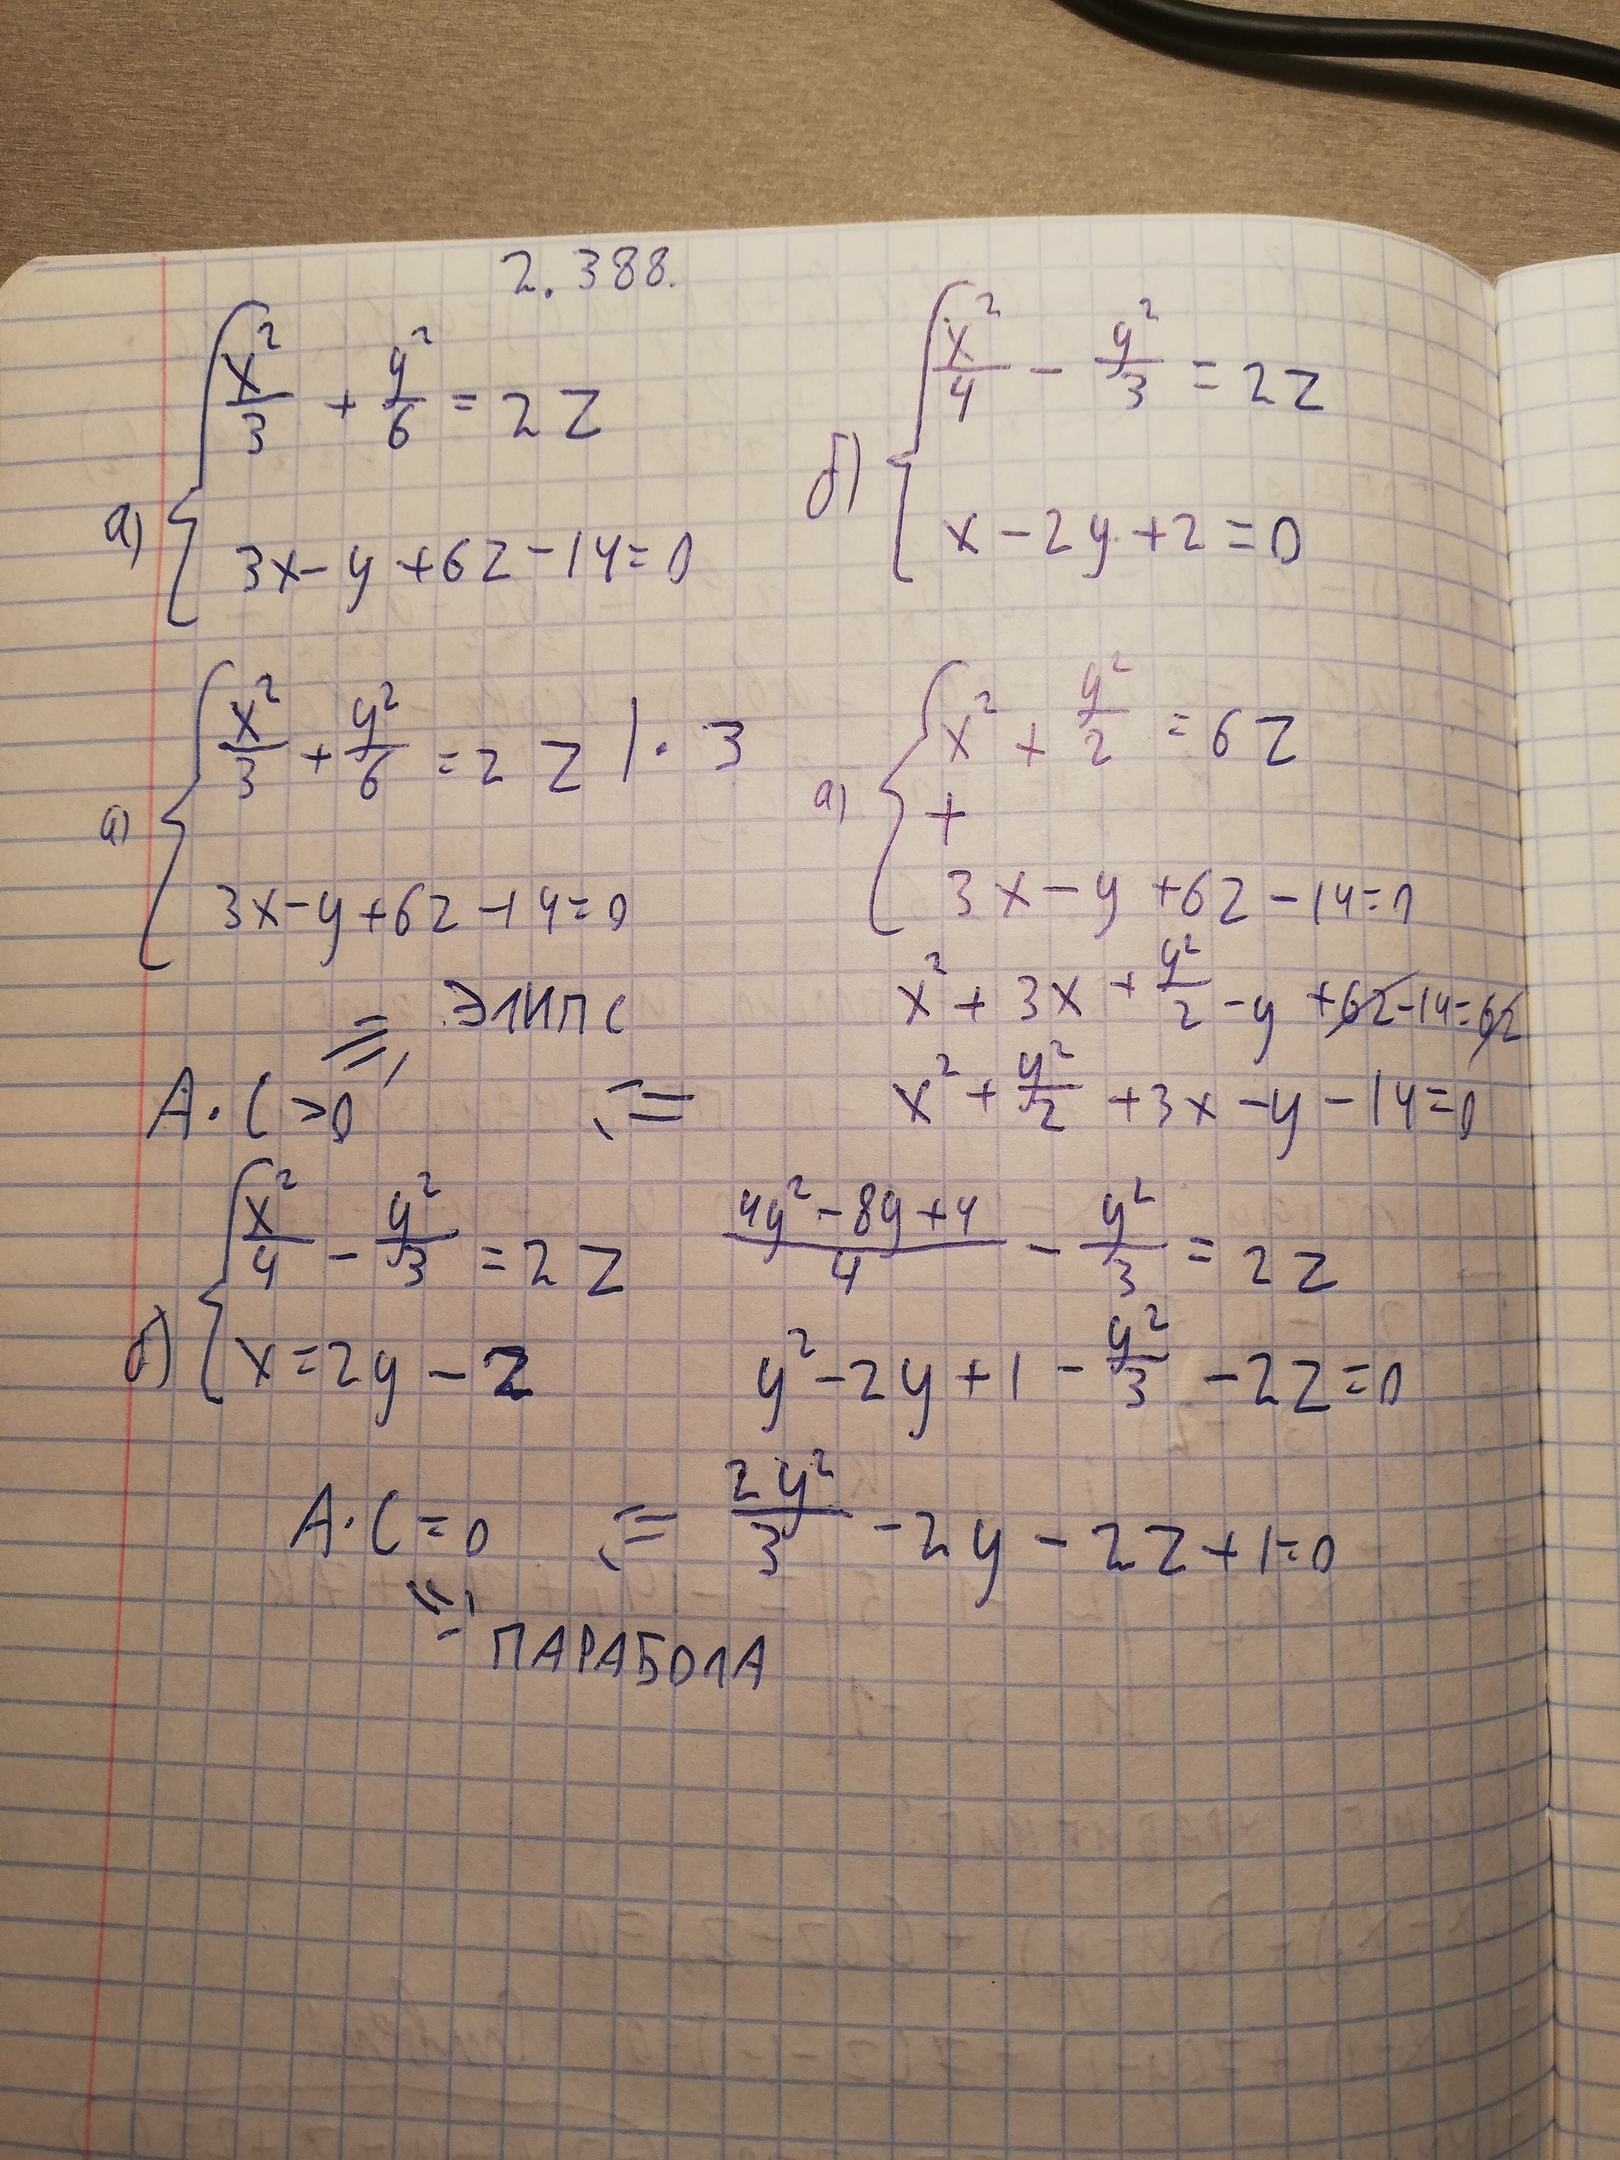 2.388.
а) { x²/3 + y²/6 = 2z
3x - y + 6z - 14 = 0
б) { x²/4 - y²/3 = 2z
x - 2y + 2 = 0
а) { x²/3 + y²/6 = 2z | · 3
3x - y + 6z - 14 = 0
а) { x² + y²/2 = 6z
+
3x - y + 6z - 14 = 0
x² + 3x + y²/2 - y + 6z - 14 = 6z
x² + y²/2 + 3x - y - 14 = 0
<=
A · C > 0
=>
ЭЛИПС
б) { x²/4 - y²/3 = 2z
x = 2y - 2
(4y² - 8y + 4)/4 - y²/3 = 2z
y² - 2y + 1 - y²/3 - 2z = 0
2y²/3 - 2y - 2z + 1 = 0
<=
A · C = 0
=>
ПАРАБОЛА